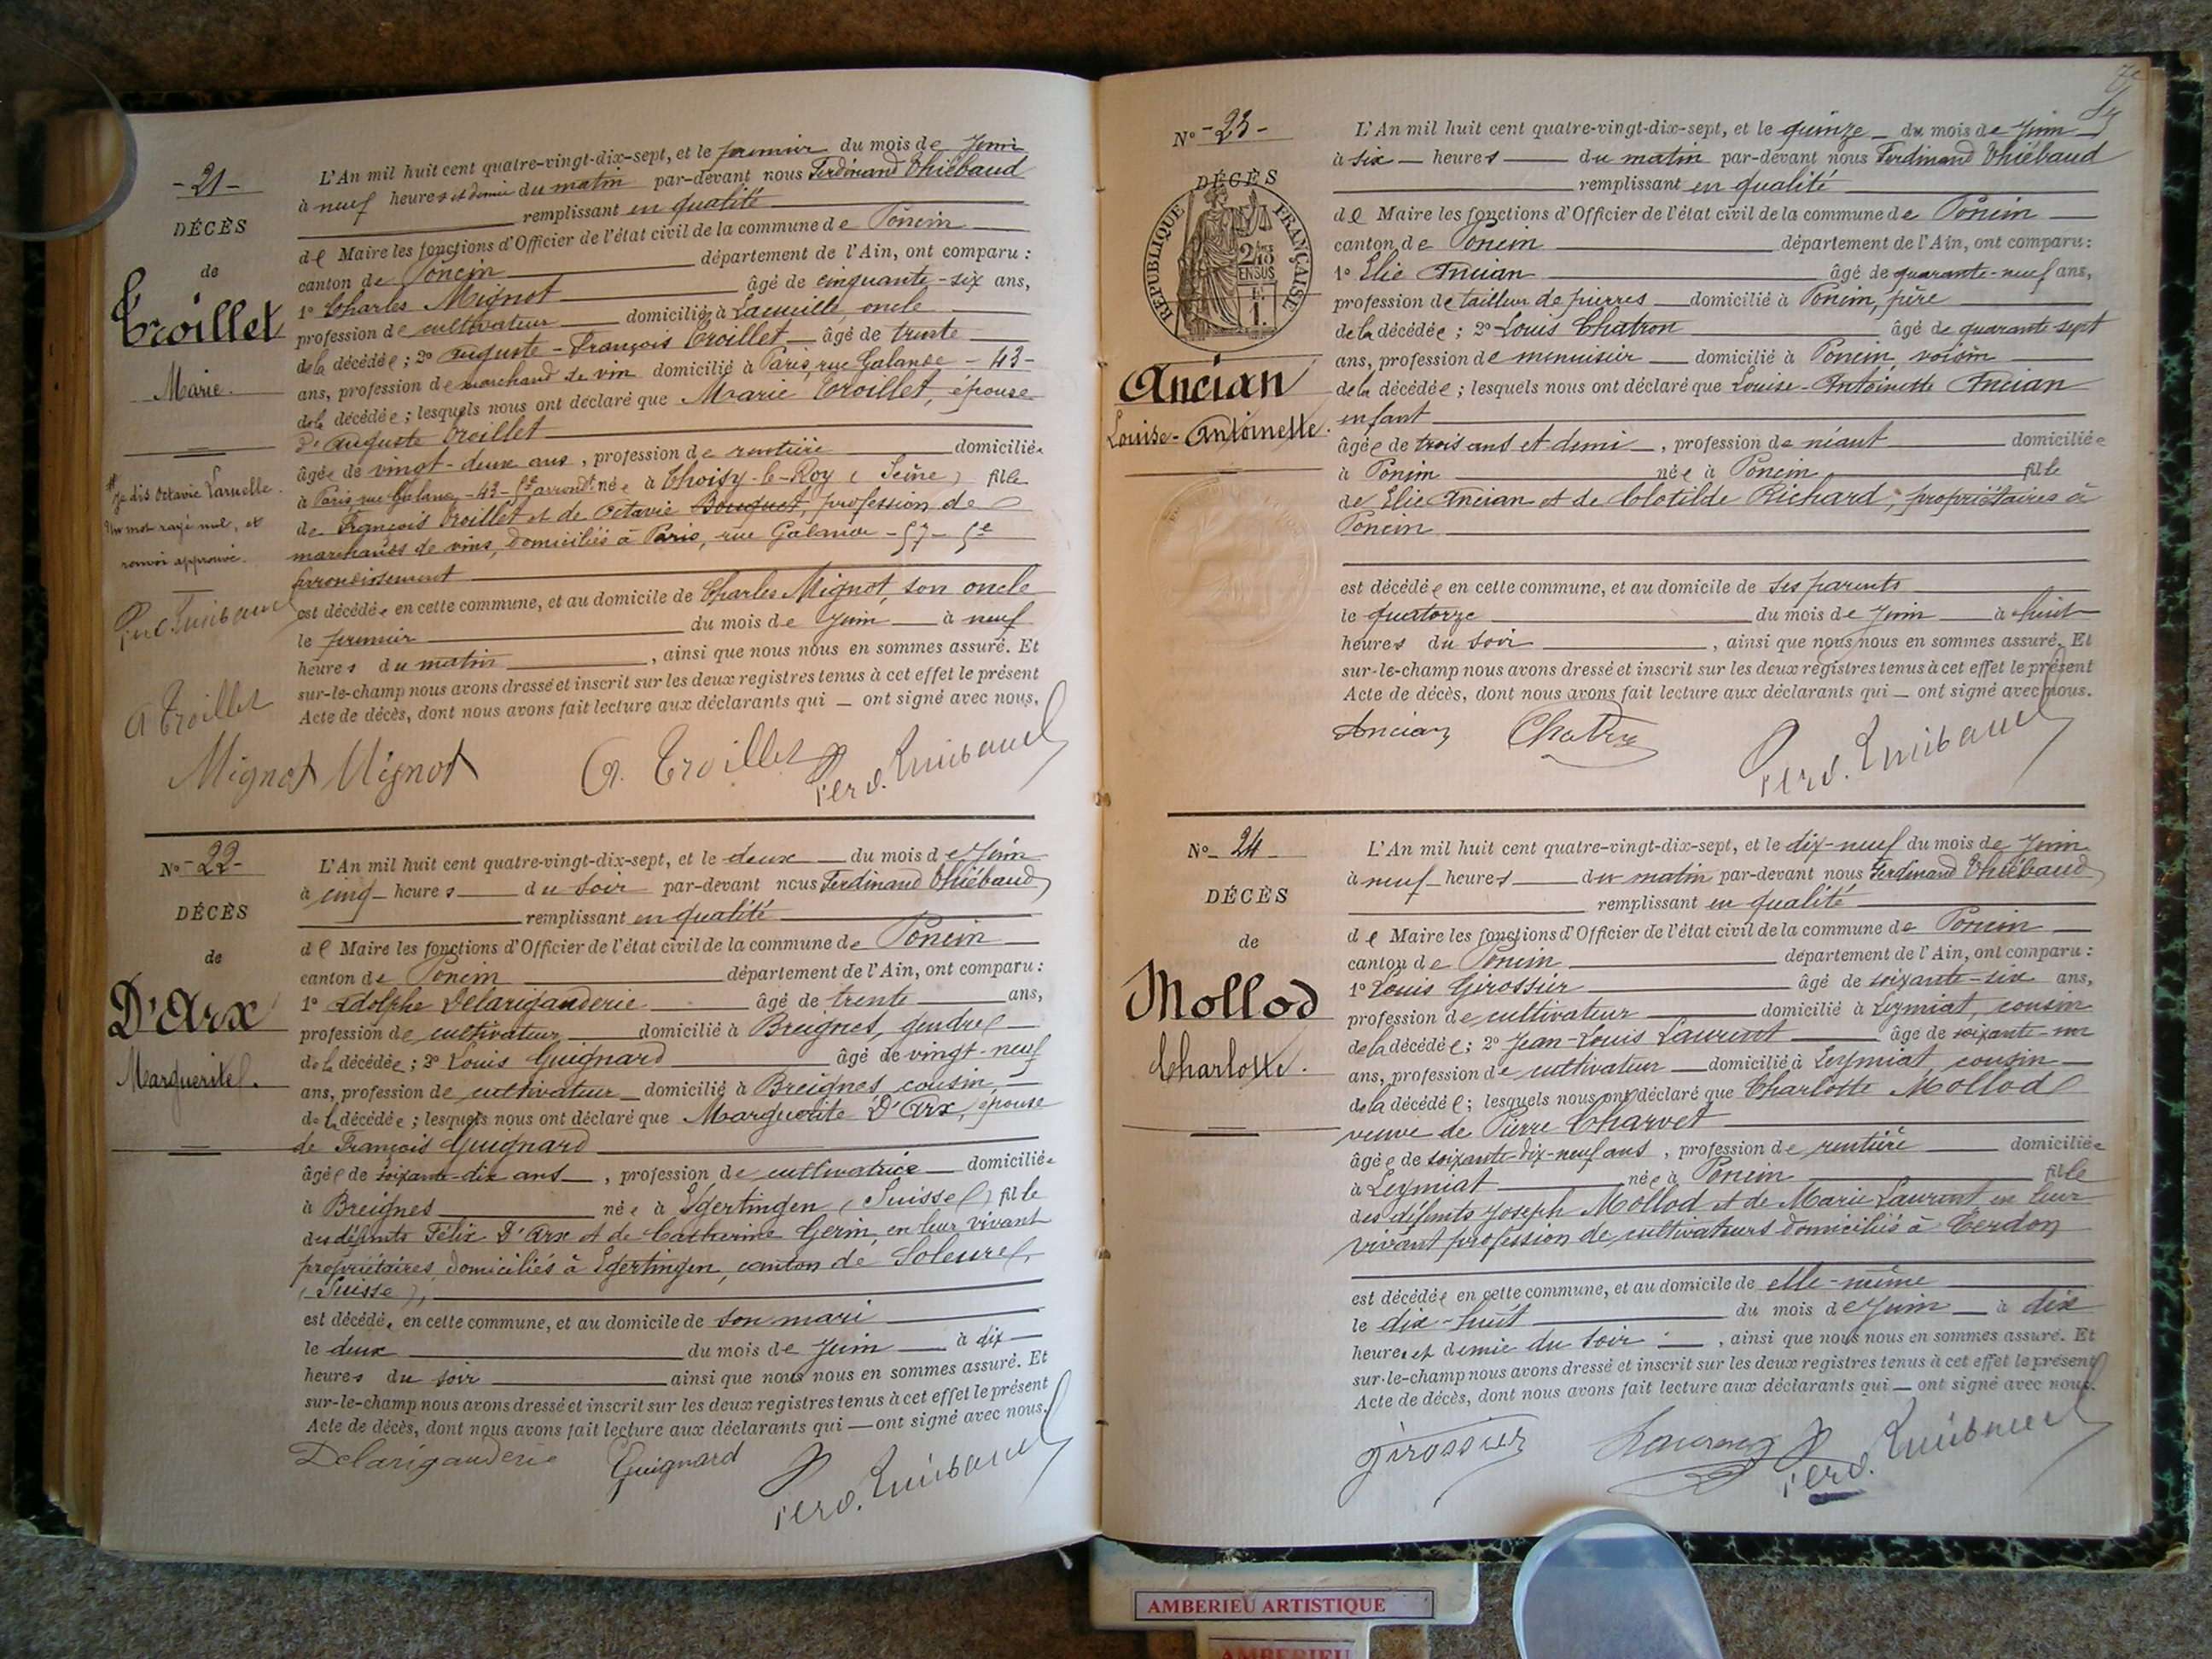 - 21 -
DÉCÈS
de
Troillet
Marie.
Je dis Octavie Laruelle.
Un mot rayé nul, et
renvoi approuvé.
A Troillet
L'An mil huit cent quatre-vingt-dix-sept, et le premier du mois de Juin
à neuf heures et demie du matin par-devant nous Ferdinand Thiébaud
remplissant en qualité
de Maire les fonctions d'Officier de l'état civil de la commune de Poncin
canton de Poncin département de l'Ain, ont comparu :
1º Charles Mignot âgé de cinquante-six ans,
profession de cultivateur domicilié à Lacueille, oncle
de la décédée ; 2º Auguste-François Troillet âgé de trente
ans, profession de marchand de vin domicilié à Paris, rue Galande - 43 -
de la décédée ; lesquels nous ont déclaré que Marie Troillet, épouse
d'Auguste Troillet
âgée de vingt-deux ans, profession de rentière domiciliée
à Paris rue Galande - 43 - 5e arrondt née à Choisy-le-Roy (Seine) fille
de François Troillet et de Octavie Bouquet, profession de
marchands de vins, domiciliés à Paris, rue Galande - 57 - 5e
Arrondissement
est décédée en cette commune, et au domicile de Charles Mignot, son oncle
le premier du mois de Juin à neuf
heures du matin, ainsi que nous nous en sommes assuré. Et
sur-le-champ nous avons dressé et inscrit sur les deux registres tenus à cet effet le présent
Acte de décès, dont nous avons fait lecture aux déclarants qui — ont signé avec nous.
Mignot Mignot A. Troillet Ferd. Thiébaud
Nº - 22 -
DÉCÈS
de
D'Arx
Marguerite.
L'An mil huit cent quatre-vingt-dix-sept, et le deux du mois de Juin
à cinq heures du soir par-devant nous Ferdinand Thiébaud
remplissant en qualité
de Maire les fonctions d'Officier de l'état civil de la commune de Poncin
canton de Poncin département de l'Ain, ont comparu :
1º Adolphe Delarigauderie âgé de trente ans,
profession de cultivateur domicilié à Breignes, gendre
de la décédée ; 2º Louis Guignard âgé de vingt-neuf
ans, profession de cultivateur domicilié à Breignes, cousin
de la décédée ; lesquels nous ont déclaré que Marguerite D'Arx, épouse
de François Guignard
âgée de soixante-dix ans, profession de cultivatrice domiciliée
à Breignes née à Egertingen (Suisse) fille
des défunts Félix D'Arx et de Catherine Gerin, en leur vivant
propriétaires, domiciliés à Egertingen, canton de Soleure,
(Suisse),
est décédée, en cette commune, et au domicile de son mari
le deux du mois de Juin à dix
heures du soir ainsi que nous nous en sommes assuré. Et
sur-le-champ nous avons dressé et inscrit sur les deux registres tenus à cet effet le présent
Acte de décès, dont nous avons fait lecture aux déclarants qui — ont signé avec nous.
Delarigauderie Guignard Ferd. Thiébaud
Nº - 23 -
DÉCÈS
RÉPUBLIQUE FRANÇAISE
2/10 EN SUS
Ancian
Louise-Antoinette.
L'An mil huit cent quatre-vingt-dix-sept, et le quinze du mois de Juin
à six heures du matin par-devant nous Ferdinand Thiébaud
remplissant en qualité
de Maire les fonctions d'Officier de l'état civil de la commune de Poncin
canton de Poncin département de l'Ain, ont comparu :
1º Elie Ancian âgé de quarante-neuf ans,
profession de tailleur de pierres domicilié à Poncin, père
de la décédée ; 2º Louis Chatron âgé de quarante-sept
ans, profession de menuisier domicilié à Poncin, voisin
de la décédée ; lesquels nous ont déclaré que Louise-Antoinette Ancian
enfant
âgée de trois ans et demi, profession de néant domiciliée
à Poncin née à Poncin fille
de Elie Ancian et de Clotilde Richard, propriétaires à
Poncin
est décédée en cette commune, et au domicile de ses parents
le quatorze du mois de Juin à huit
heures du soir, ainsi que nous nous en sommes assuré. Et
sur-le-champ nous avons dressé et inscrit sur les deux registres tenus à cet effet le présent
Acte de décès, dont nous avons fait lecture aux déclarants qui — ont signé avec nous.
Ancian Chatron Ferd. Thiébaud
Nº - 24 -
DÉCÈS
de
Mollod
Charlotte.
L'An mil huit cent quatre-vingt-dix-sept, et le dix-neuf du mois de Juin
à neuf heures du matin par-devant nous Ferdinand Thiébaud
remplissant en qualité
de Maire les fonctions d'Officier de l'état civil de la commune de Poncin
canton de Poncin département de l'Ain, ont comparu :
1º Louis Girossier âgé de soixante-six ans,
profession de cultivateur domicilié à Leymiat, cousin
de la décédée ; 2º Jean-Louis Laurent âgé de soixante-un
ans, profession de cultivateur domicilié à Leymiat, cousin
de la décédée ; lesquels nous ont déclaré que Charlotte Mollod
veuve de Pierre Charvet
âgée de soixante-dix-neuf ans, profession de rentière domiciliée
à Leymiat née à Poncin fille
des défunts Joseph Mollod et de Marie Laurent en leur
vivant profession de cultivateurs domiciliés à Cerdon
est décédée en cette commune, et au domicile de elle-même
le dix-huit du mois de Juin à dix
heures et demie du soir, ainsi que nous nous en sommes assuré. Et
sur-le-champ nous avons dressé et inscrit sur les deux registres tenus à cet effet le présent
Acte de décès, dont nous avons fait lecture aux déclarants qui — ont signé avec nous.
Girossier Laurent Ferd. Thiébaud
AMBERIEU ARTISTIQUE
AMBERIEU